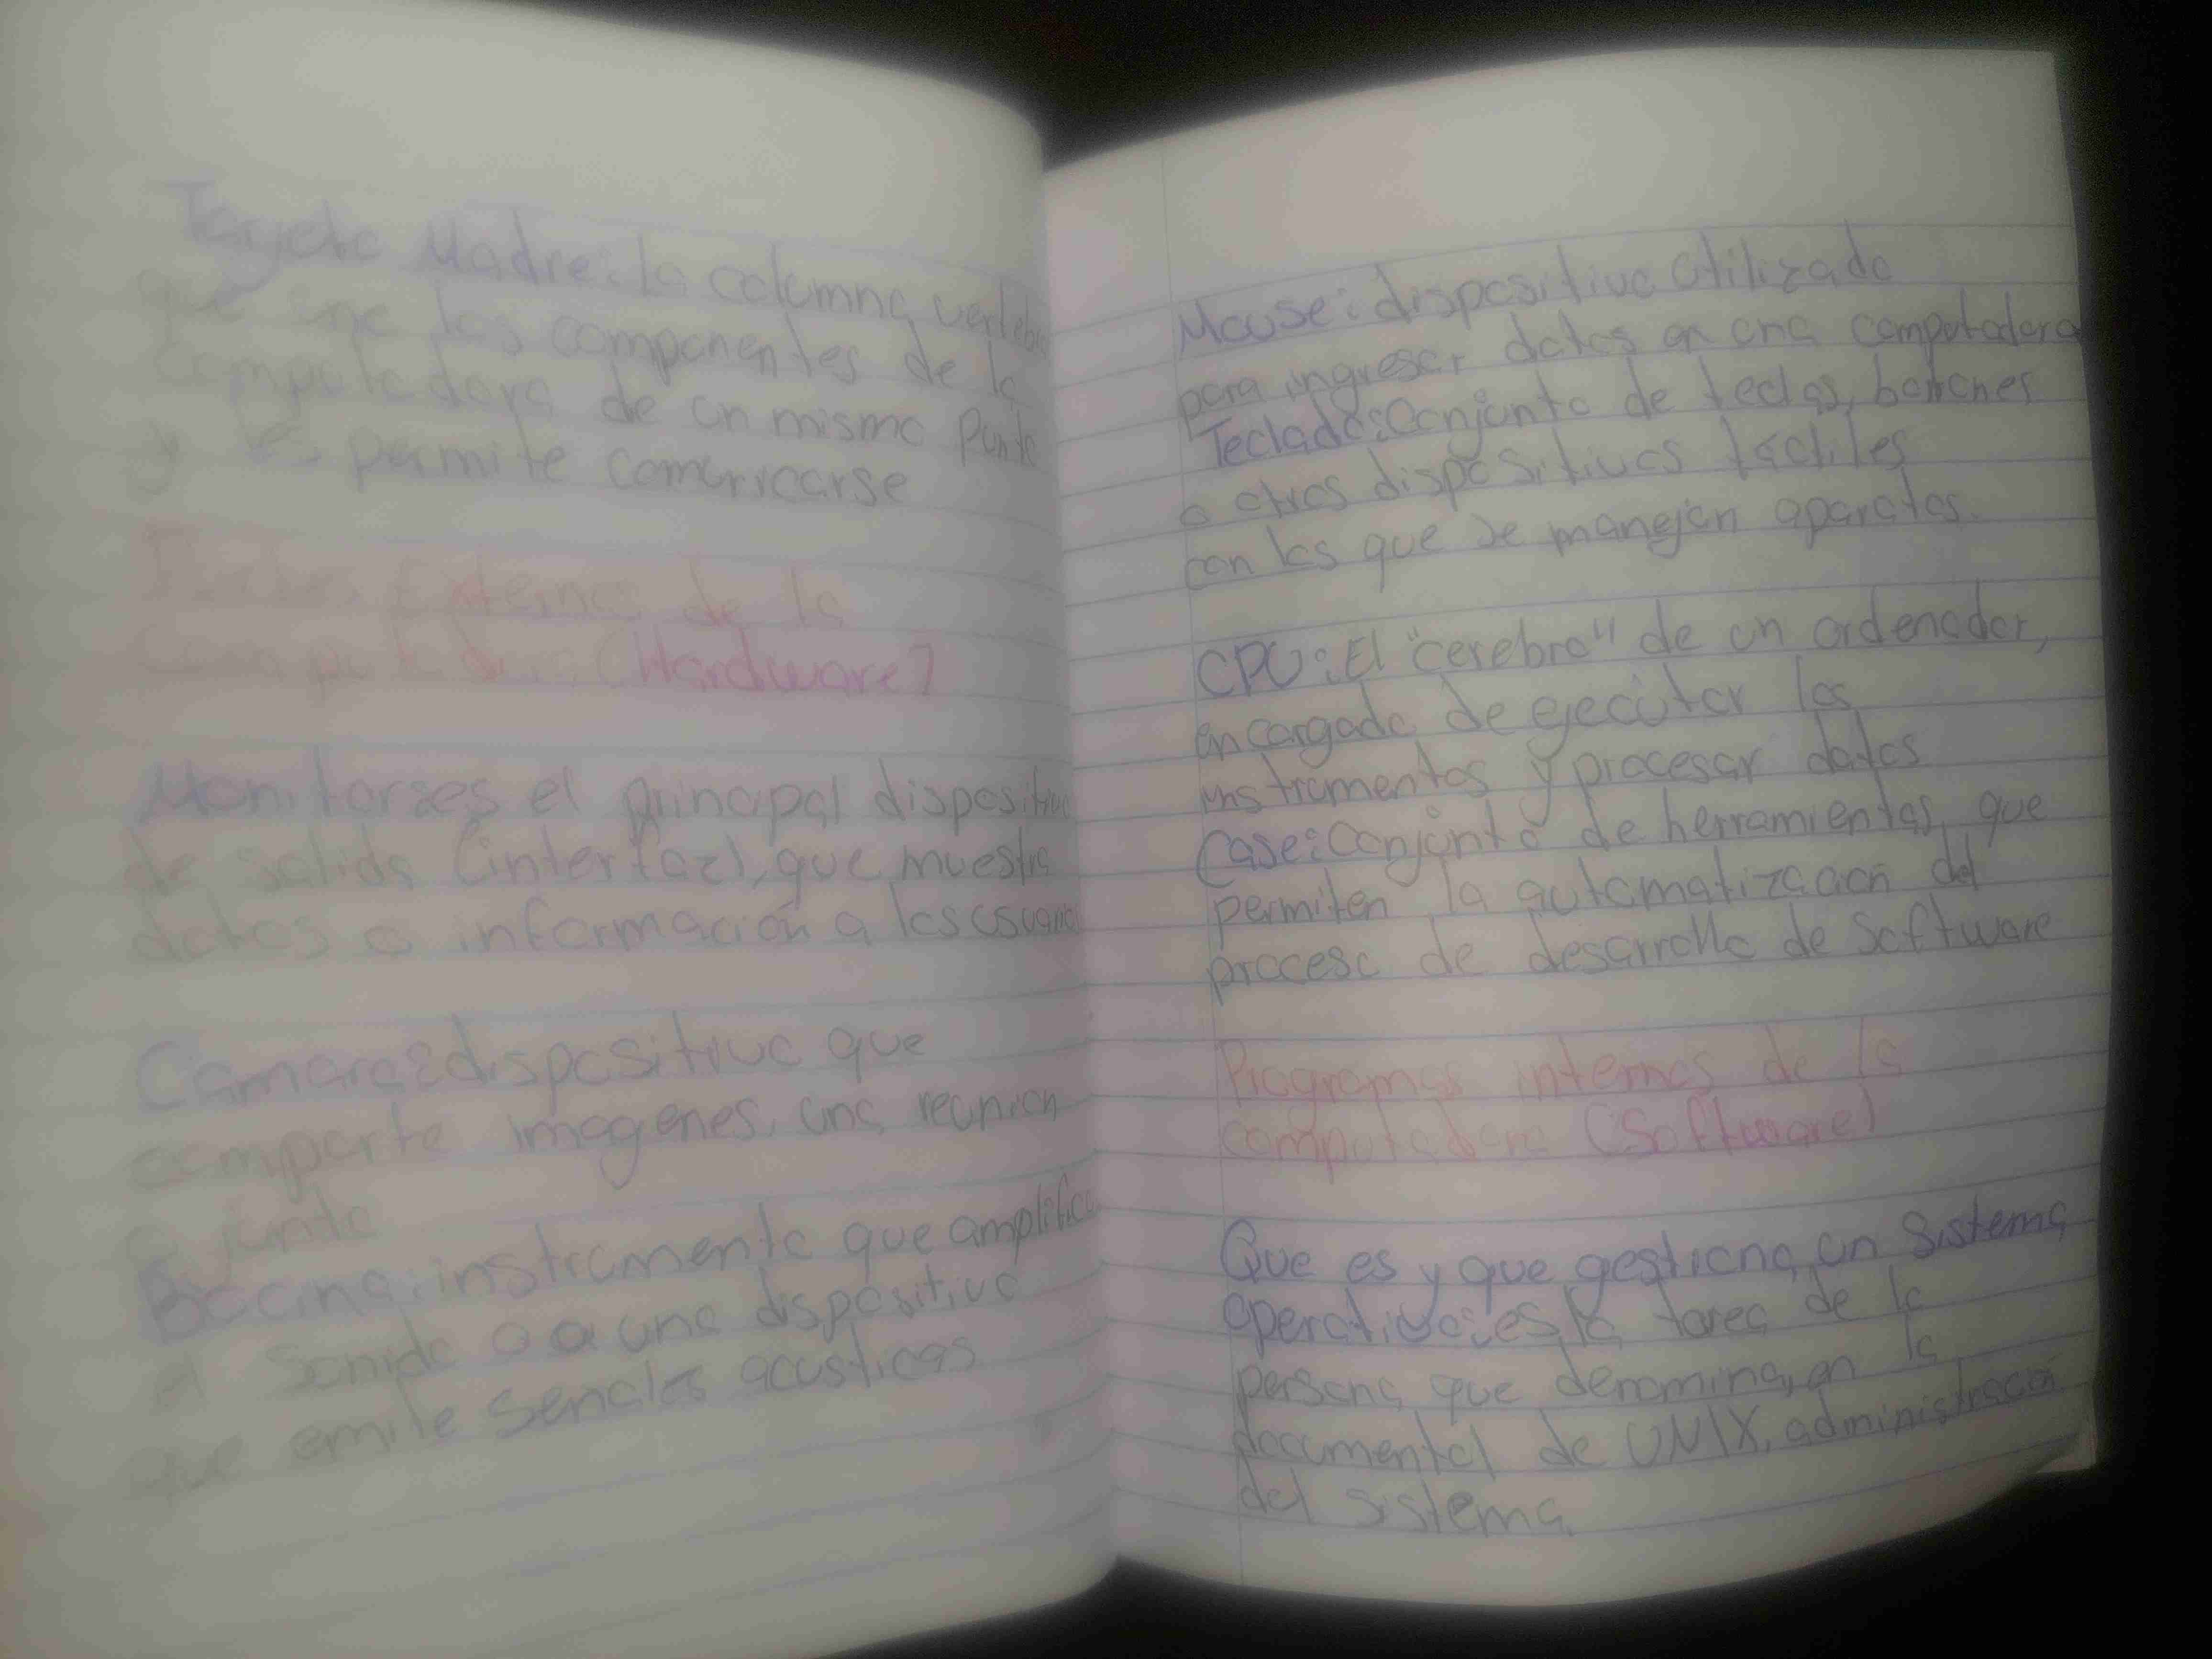 Tarjeta Madre: la columna vertebra
que une los componentes de la
computadora de un mismo Punto
y les permite comunicarse
Externas de la
(Hardware)
Monitor: es el principal dispositivo
de salida (interfaz), que muestra
datos o información a los usuario
Camara: dispositivo que
comparte imagenes, una reunion
o junta
Bocina: instrumento que amplifica
el sonido o a una dispositivo
que emite señales acusticas
Mouse: dispositivo utilizado
para ingresar datos en una computadora
Teclado: Conjunto de teclas, botones
o otros dispositivos táctiles
con los que se manejan aparatos.
CPU: El "cerebro" de un ordenador,
encargado de ejecutar los
instrumentos y procesar datos
Case: Conjunto de herramientas que
permiten la automatización del
proceso de desarrollo de Software
Programas internos de la
computadora (Software)
Que es y que gestiona un Sistema
operativo: es la tarea de la
persona que denomina, en la
documental de UNIX, administración
del sistema.